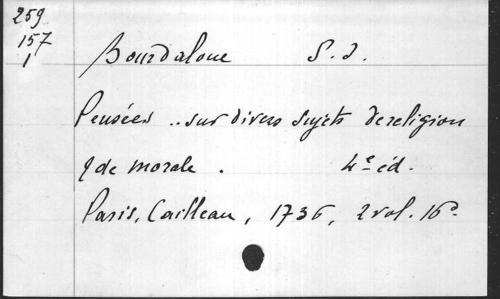 259
157
1
Bourdaloue S. J.
Pensées .. sur divers sujets de religion
& de morale . 4e éd.
Paris, Cailleau, 1736, 2 vol. 16°.